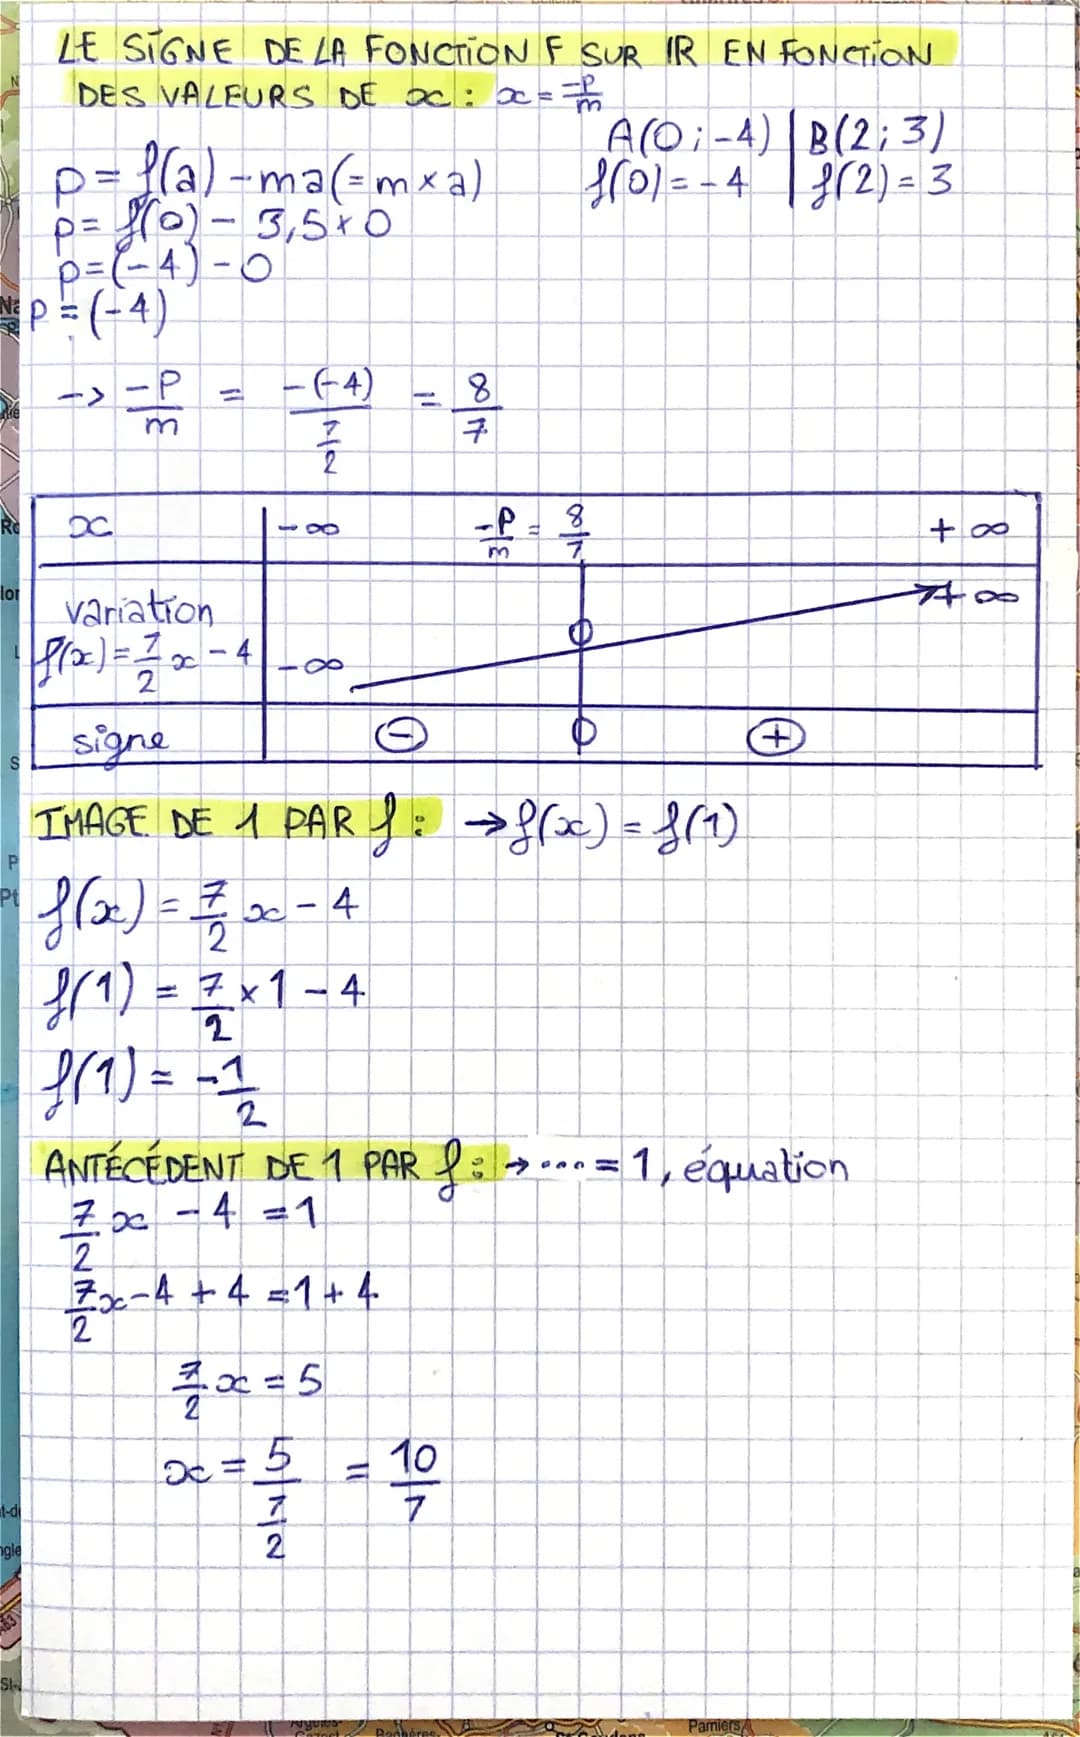 LE SIGNE DE LA FONCTION F SUR IR EN FONCTION
DES VALEURS DE x : x = -p/m
A(0 ; -4) | B(2 ; 3)
f(0) = -4 | f(2) = 3
p = f(a) - ma (= m × a)
p = f(0) - 3,5 × 0
p = (-4) - 0
p = (-4)
-> -p/m = -(-4)/(7/2) = 8/7
x | -∞ -p/m = 8/7 + ∞
variation
f(x) = 7/2 x - 4 | -∞ 0 + ∞
signe - 0 +
IMAGE DE 1 PAR f : → f(x) = f(1)
f(x) = 7/2 x - 4
f(1) = 7/2 × 1 - 4
f(1) = -1/2
ANTÉCÉDENT DE 1 PAR f : → ... = 1, équation
7/2 x - 4 = 1
7/2 x - 4 + 4 = 1 + 4
7/2 x = 5
x = 5/(7/2) = 10/7
Pamiers